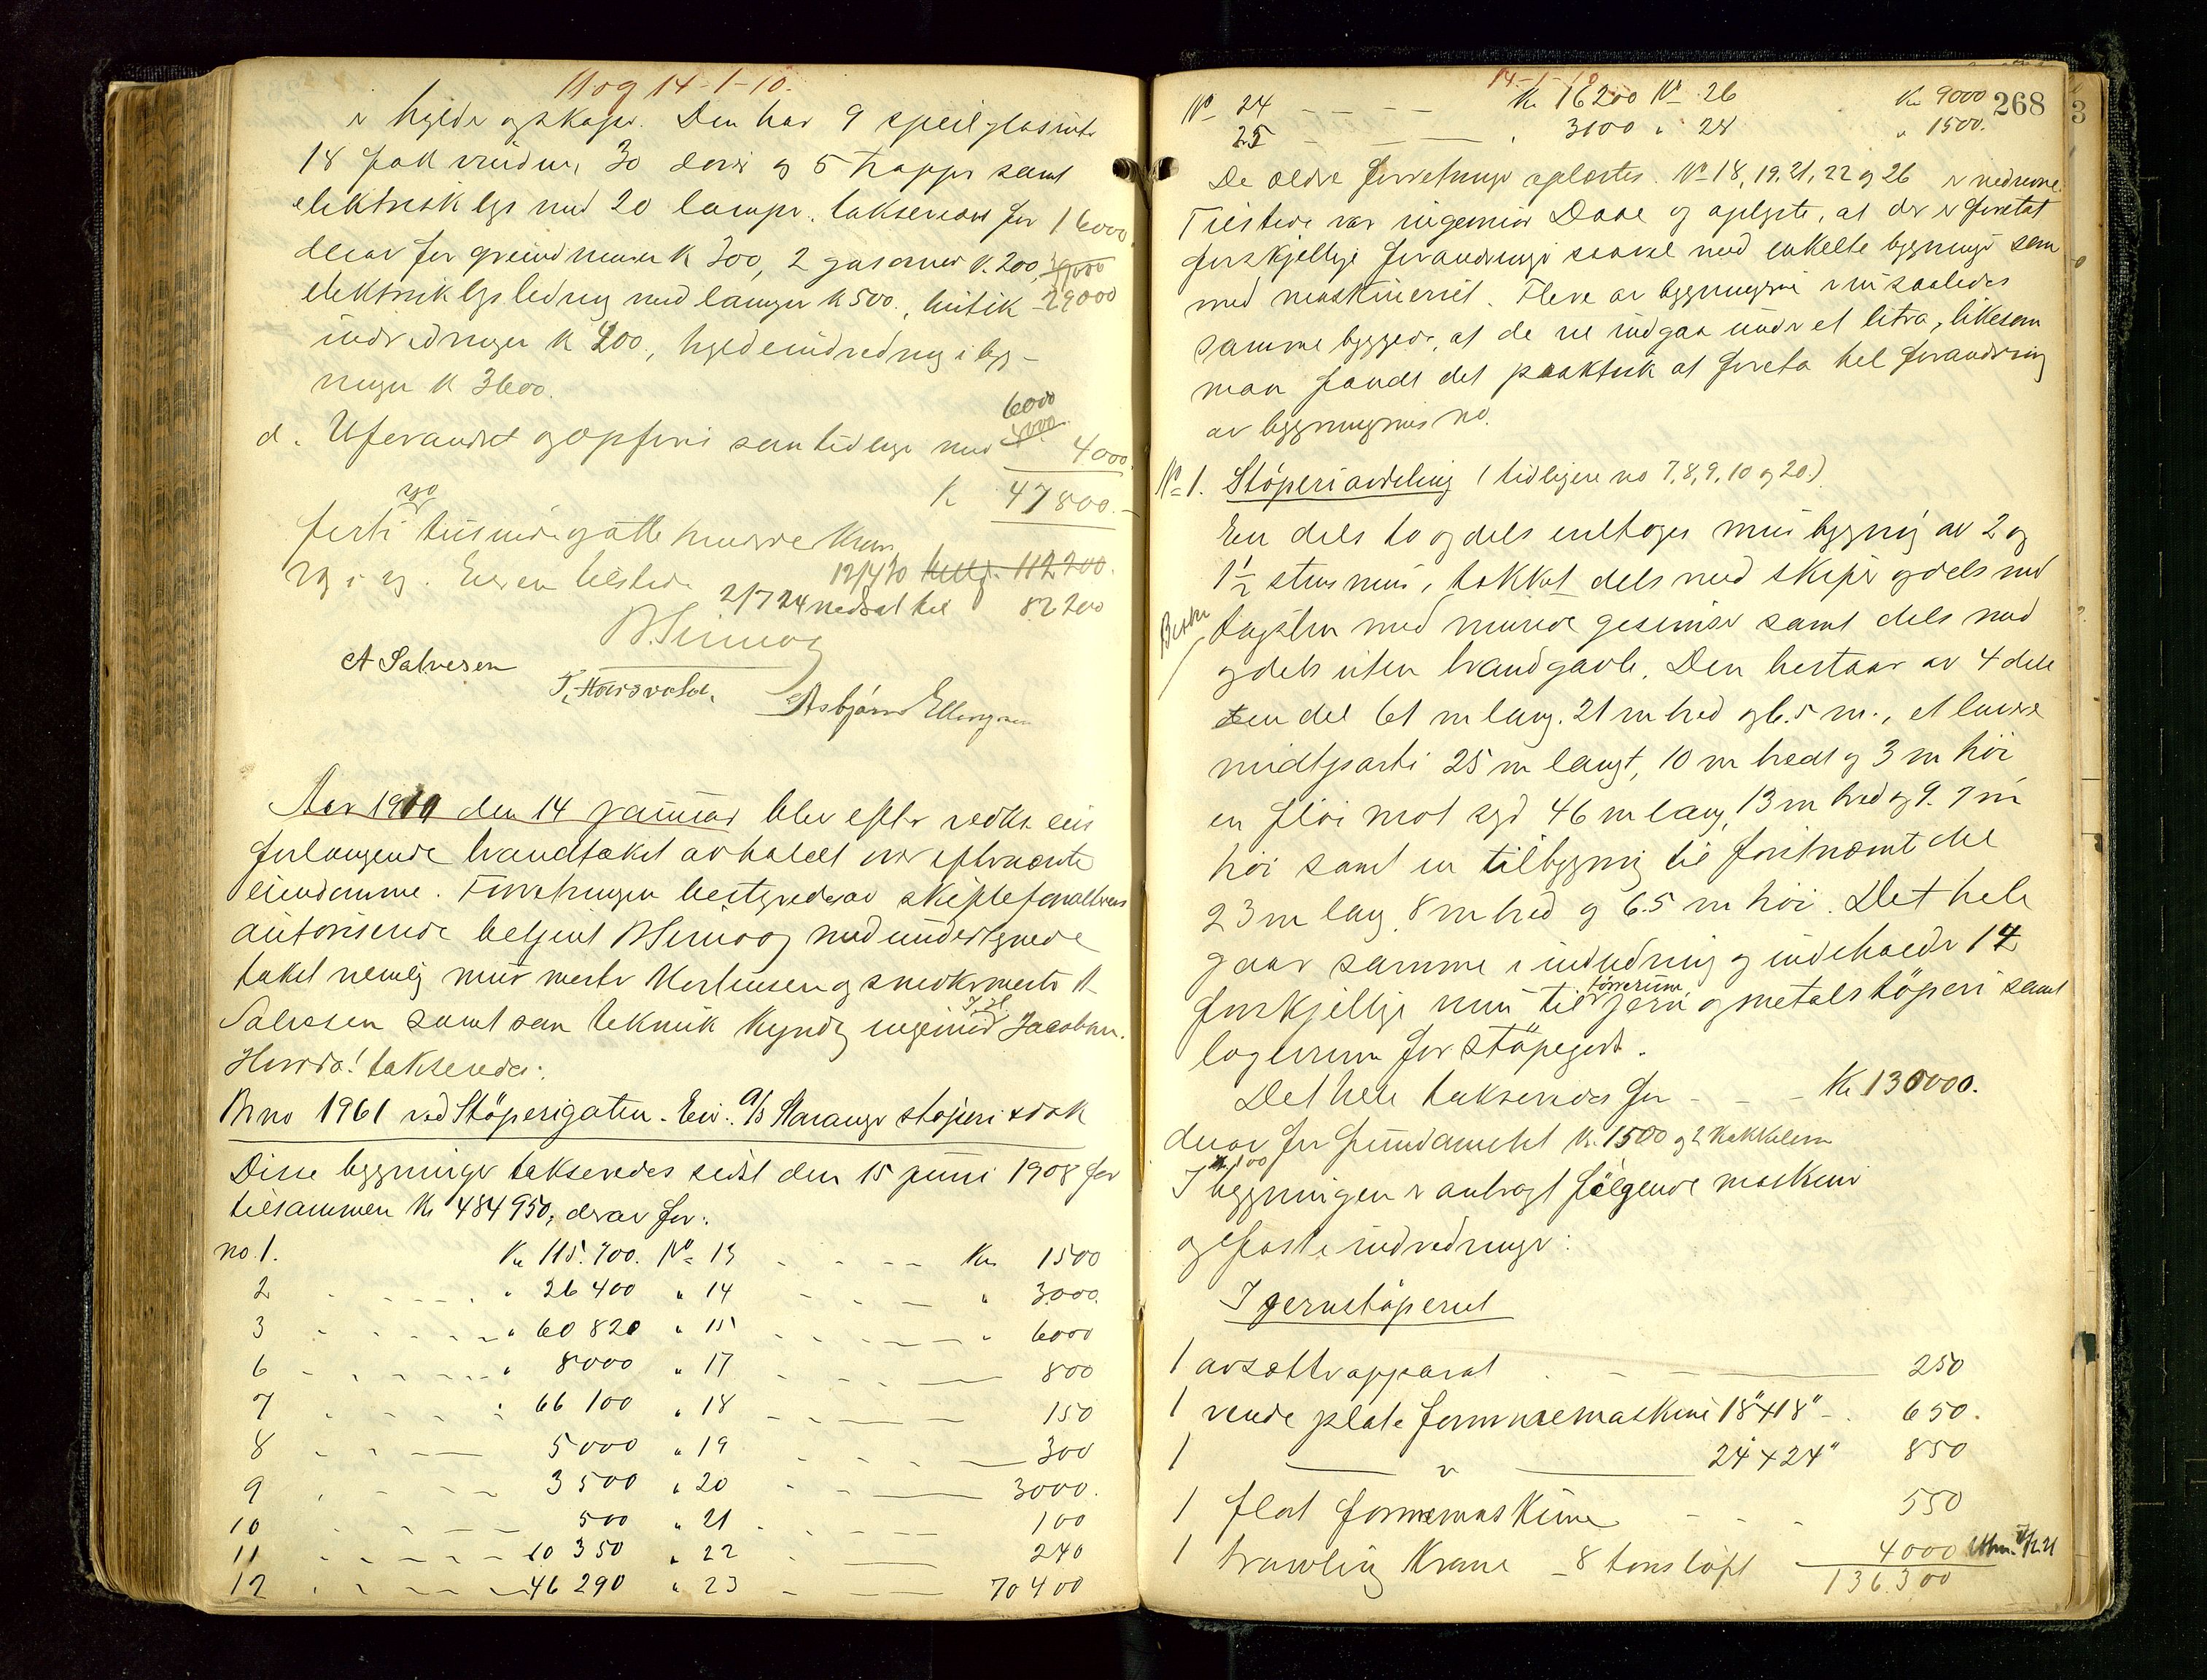 11 og 14-1-10.
i hylder og skaper. Den har 9 speilglasruter
18 fak vinduer, 30 dører og 5 trapper samt
elektrisk lys med 20 lamper. takseres for 16000.
derav for grundmuren k 300, 2 gasovner k. 200, 
elektrisk lysledning med lamper k 500., butik 29000
indredninger k 200., hyldeindredning i byg-
ningen k 3600.
d. Uforandret og opføres som tidligere med 6000 4000.
K 47800.-
syv
førti tusinde og otte hundre Kroner
12/4 20 112200.
2/7 24 nedsat til 82200
A Salvesen
Asbjørn Ellingsen
Aar 1910 den 14 januar blev efter vedk. eiers
forlangende brandtakst avholdt over efternævnte
eiendomme. Forretningen bestyredes av skifteforvalterens
autoriserede betjent med undertegnede
takst nemlig mur mester Mortensen og snedkermester A
Salvesen samt som teknisk kyndig ingeniør Jacobsen.
Hvorda! takseredes:
Br no 1961 ved Støperigaten. Eier: A/S Stavanger støperi & dok
Disse bygninger takseredes sidst den 15 juni 1908 for
tilsammen Kr 484950, derav for:
no. 1. Kr 115.700. No 13 Kr 1500
2 " 26400 " 14 " 3000.
3 " 60820 " 15 " 6000
6 " 8000 " 17 800
7 " 66100 " 18 150
8 5000 " 19 300
9 3500 " 20 3000.
10 500 " 21 100
11 10350 " 22 240
12 46290 " 23 70400
14-1-10
268
No 24 Kr 16200 No 26 Kr 9000
25 " 3100 " 28 " 1500.
De ældre forretninger oplæstes. No 18, 19, 21, 22 og 26 er nedrevne.
Tilstede var ingeniør Daae og oplyste, at der er foretat
forskjellige forandringer saavel med enkelte bygninger som
med maskineriet. Flere av bygningerne er nu saaledes
sammenbyggede, at de vil indgaa under et litra, likesom
man fandt det praktisk at foreta hel forandring
av bygningernes no.
No 1. Støperiavdeling (tidligere no 7, 8, 9, 10 og 20.)
En dels to og dels enetages murbygning av 2 og
1½ stens mur, tækket dels med skifer og dels med
tagsten med murede gesimser samt dels med
og dels uten brandgavle. Den bestaar av 4 dele
en del 61 m lang. 21 m bred og 6.5 m., et lavere
midtparti 25 m langt, 10 m bredt og 3 m høi
en fløi mot syd 46 m lang, 13 m bred og 9.7 m
høi samt en tilbygning til førstnævnt del
23 m lang 8 m bred og 6.5 m høi. Det hele
gaar sammen i indredning og indeholder 14
forskjellige rum til tørrerum jern og metalstøperi samt
lagerrum for støpegods.
Det hele takseredes for - - - Kr 130000.
derav for fundamentet kr. 1500 og 2 kakkelovne
kr. 100
I bygningen er anbragt følgende maskiner
og faste indredninger:
I jernstøperiet
1 avsætterapparat 250
1 vende plate formemaskine 18"x18" - 650.
1 " 24"x24" 850
1 flat formemaskine - - - 550
1 travling Krane - 8 tons løft 4000
136.300